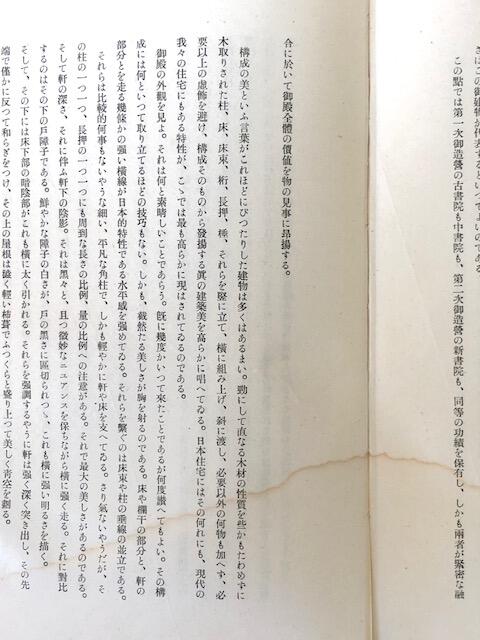 さはこの御殿が代表するといつてよいのである
この點では第一次御造營の古書院も中書院も、第二次御造營の新書院も、同等の功績を保有し、しかも兩者が緊密な融
合に於いて御殿全體の價値を物の見事に昂揚する。
構成の美といふ言葉がこれほどにぴつたりした建物は多くはあるまい。勁にして直なる木材の性質を些かもたわめずに
木取りされた柱、床、床束、桁、長押、棰、それらを竪に立て、橫に組み上げ、斜に渡し、必要以外の何物も加へず、必
要以上の虛飾を避け、構成そのものから發揚する眞の建築美を高らかに唱へてゐる。日本住宅にはその何れにも、現代の
我々の住宅にもある特性が、こゝでは最も高らかに現はされてゐるのである。
御殿の外觀を見よ。それは何と素晴しいことであらう。旣に幾度かいつて來たことであるが何度讃へてもよい。その構
成には何といつて取り立てるほどの技巧もない。しかも、截然たる美しさが胸を射るのである。床や欄干の部分と、軒の
部分とを走る幾條かの强い橫線が日本的特性である水平感を强めてゐる。それらを繫ぐのは床束や柱の垂線の並立である。
それらは比較的何事もないやうな細い、平凡な角柱で、しかも輕やかに軒や床を支へてゐる。さり氣ないやうだが、そ
の柱の一つ一つ、長押の一つ一つにも周到な長さの比例、量の比例への注意がある。それで最大の美しさがあるのである。
そして軒の深さ、それに伴ふ軒下の陰影。それは黑々と、且つ微妙なニュアンスを保ちながら橫に强く走る。それに對比
するのはその下の戶障子である。鮮やかな障子の白さが、戶の黑さに區切られつゝ、これも橫に强い明るさを描く。
そして、その下には床下部の暗陰部がこれも橫に太く引かれる。それらを强調するやうに軒は强く深く突き出し、その先
端で僅かに反つて和らぎをつけ、その上の屋根は謐く輕い杮葺でふつくらと盛り上つて美しく靑空を劃る。